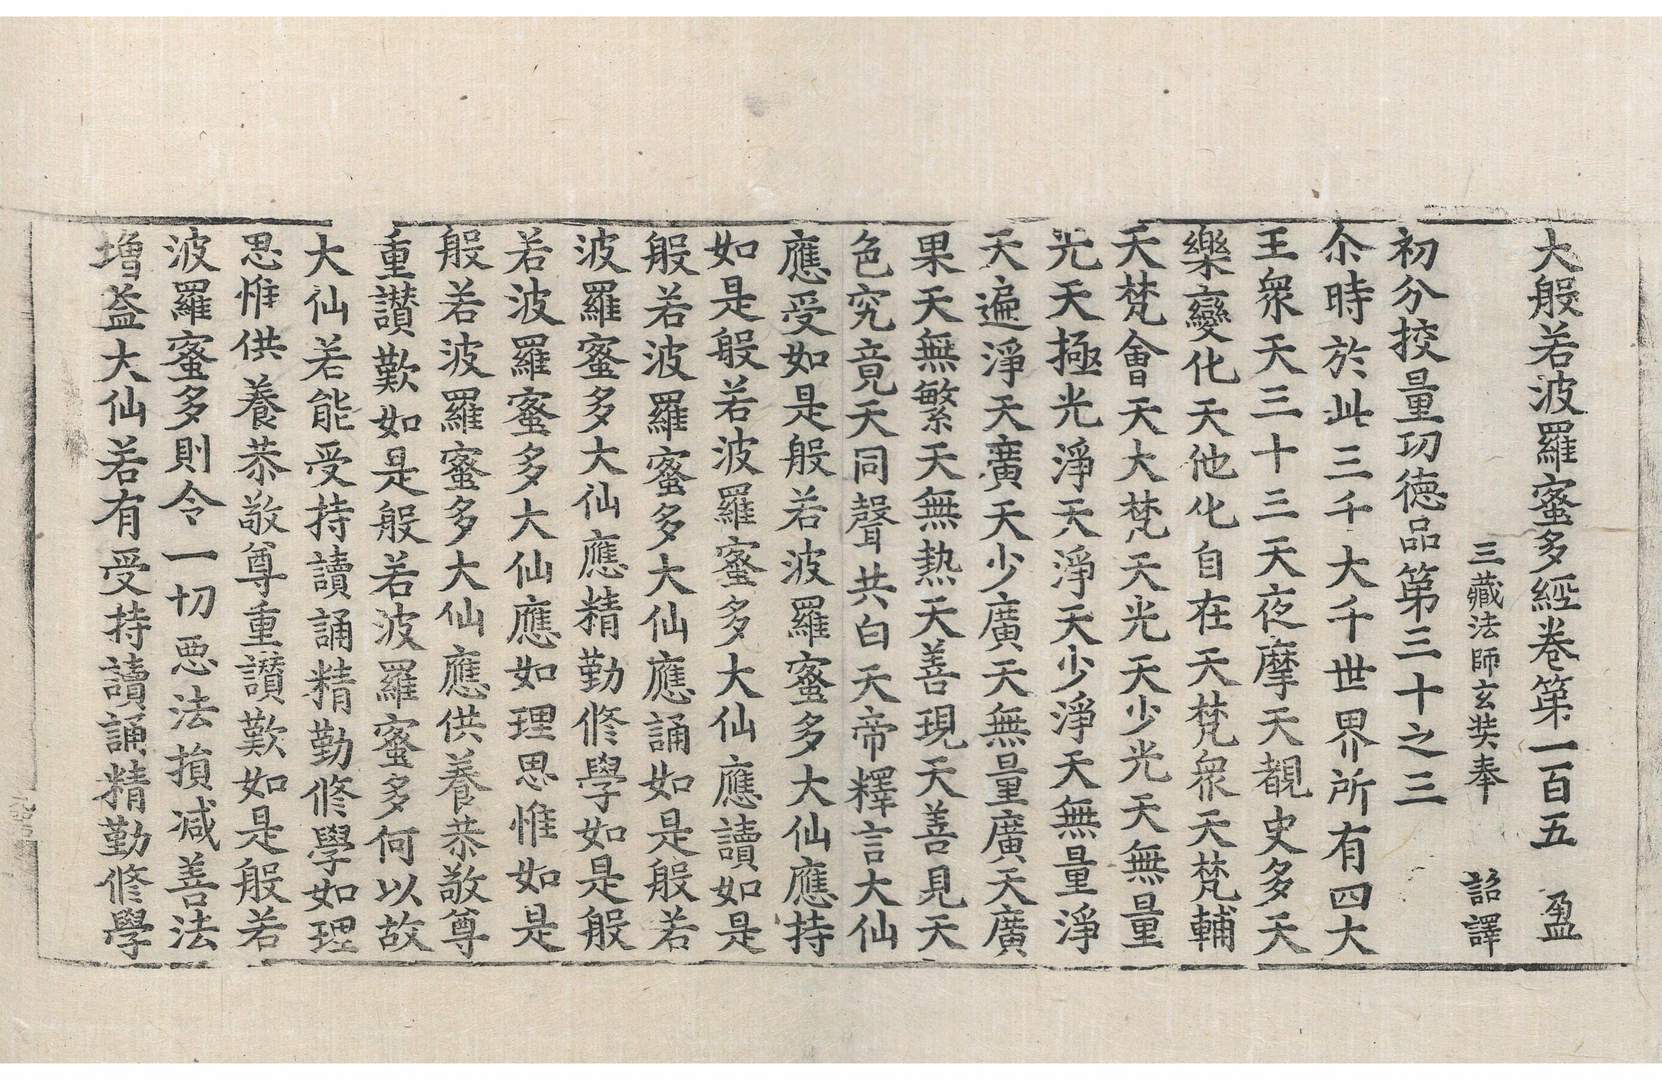 大般若波羅蜜多經卷第一百五　盈
三藏法師玄奘奉　詔譯
初分挍量功德品第三十之三
尒時於此三千大千世界所有四大
王衆天三十三天夜摩天覩史多天
樂變化天他化自在天梵衆天梵輔
天梵會天大梵天光天少光天無量
光天極光淨天淨天少淨天無量淨
天遍淨天廣天少廣天無量廣天廣
果天無繁天無熱天善現天善見天
色究竟天同聲共白天帝釋言大仙
應受如是般若波羅蜜多大仙應持
如是般若波羅蜜多大仙應讀如是
般若波羅蜜多大仙應誦如是般若
波羅蜜多大仙應精勤修學如是般
若波羅蜜多大仙應如理思惟如是
般若波羅蜜多大仙應供養恭敬尊
重讃歎如是般若波羅蜜多何以故
大仙若能受持讀誦精勤修學如理
思惟供養恭敬尊重讃歎如是般若
波羅蜜多則令一切惡法損减善法
増益大仙若有受持讀誦精勤修學